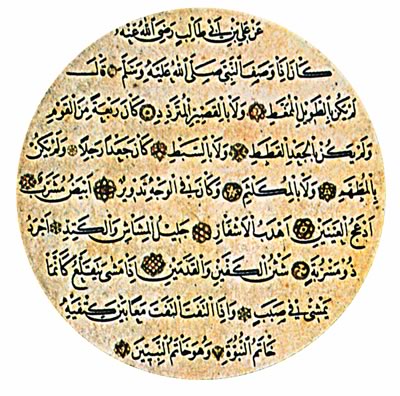 عَنْ عَلِيِّ بْنِ أَبِي طَالِبٍ رَضِيَ اللهُ عَنْهُ
كَانَ إِذَا وَصَفَ النَّبِيَّ صَلَّى اللهُ عَلَيْهِ وَسَلَّمَ قَالَ
لَمْ يَكُنْ بِالطَّوِيلِ الْمُمَّغِطِ وَلَا بِالْقَصِيرِ الْمُتَرَدِّدِ كَانَ رَبْعَةً مِنَ الْقَوْمِ
وَلَمْ يَكُنْ بِالْجَعْدِ الْقَطَطِ وَلَا بِالسَّبْطِ كَانَ جَعْدًا رَجِلًا وَلَمْ يَكُنْ
بِالْمُطَهَّمِ وَلَا بِالْمُكَلْثَمِ وَكَانَ فِي الْوَجْهِ تَدْوِيرٌ أَبْيَضُ مُشْرَبٌ
أَدْعَجُ الْعَيْنَيْنِ أَهْدَبُ الْأَشْفَارِ جَلِيلُ الْمُشَاشِ وَالْكَتَدِ أَجْرَدُ
ذُو مَسْرُبَةٍ شَثْنُ الْكَفَّيْنِ وَالْقَدَمَيْنِ إِذَا مَشَى يَتَقَلَّعُ كَأَنَّمَا
يَمْشِي فِي صَبَبٍ وَإِذَا الْتَفَتَ الْتَفَتَ مَعًا بَيْنَ كَتِفَيْهِ
خَاتَمُ النُّبُوَّةِ وَهُوَ خَاتَمُ النَّبِيِّينَ